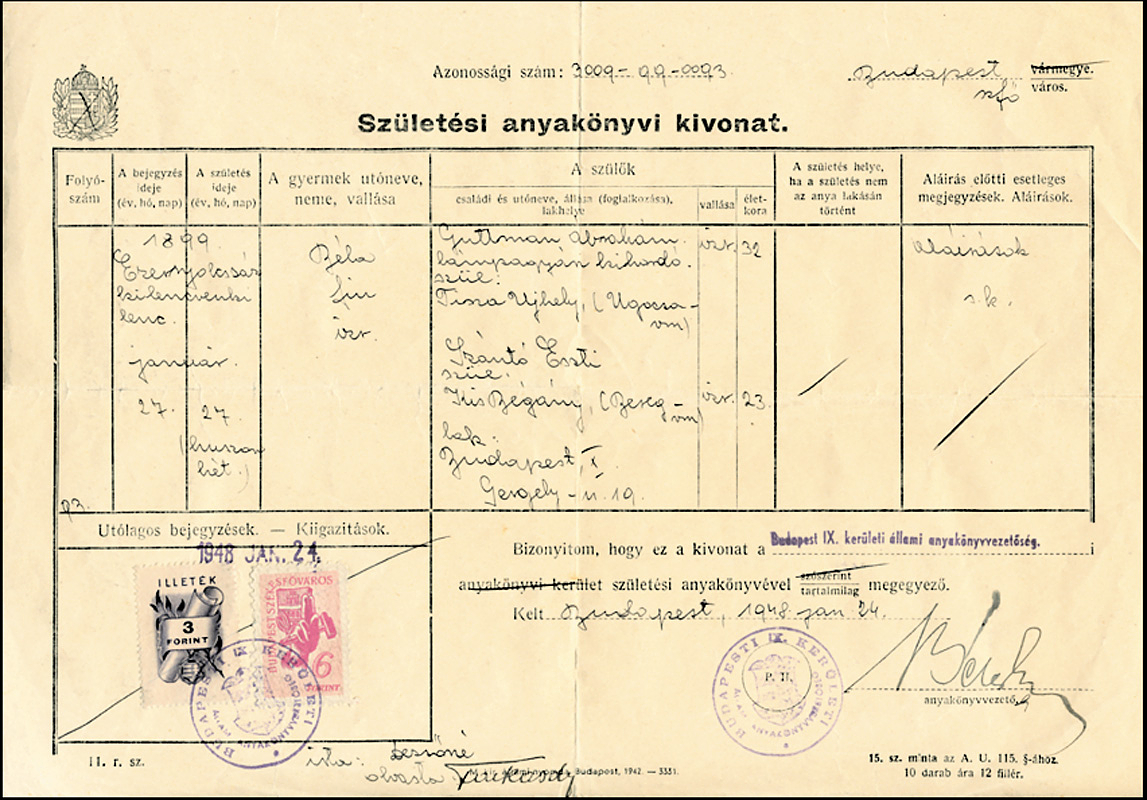 Azonossági szám: 3009-99-0093.
Budapest vármegye.
szfő város.
Születési anyakönyvi kivonat.
Folyó-
szám
A bejegyzés
ideje
(év, hó, nap)
A születés
ideje
(év, hó, nap)
A gyermek utóneve,
neme, vallása
A szülők
családi és utóneve, állása (foglalkozása),
lakhelye
vallása
élet-
kora
A születés helye,
ha a születés nem
az anya lakásán
történt
Aláírás előtti esetleges
megjegyzések. Aláírások.
1899
Ezernyolcszáz
kilencvenki
lenc.
január.
27.
27.
(huszon
hét.)
Béla
fiu
izr.
Guttman Ábrahám
izr. 32
szül:
Tisza Ujhely, (Ugocsa-
vm)
Szántó Eszti
szül:
Kis Bégány, (Bereg-
vm)
izr. 23.
lak:
Budapest, X.
Gergely-u. 19.
aláírások
s.k.
93.
Utólagos bejegyzések. — Kiigazitások.
1948 JAN. 24.
ILLETÉK
3
FORINT
BUDAPEST SZÉKESFŐVÁROS
6
FORINT
BUDAPESTI IX. KERÜLETI
ÁLLAMI ANYAKÖNYVVEZETŐSÉG
Bizonyitom, hogy ez a kivonat a Budapest IX. kerületi állami anyakönyvvezetőség. i
anyakönyvi kerület születési anyakönyvével szószerint
tartalmilag megegyező.
Kelt Budapest, 1948. jan 24.
BUDAPESTI IX. KERÜLETI
ÁLLAMI ANYAKÖNYVVEZETŐSÉG
P. H.
anyakönyvvezető.
11. r. sz.
irta:
olvasta
Budapest, 1942. — 3331.
15. sz. minta az A. U. 115. §-ához.
10 darab ára 12 fillér.